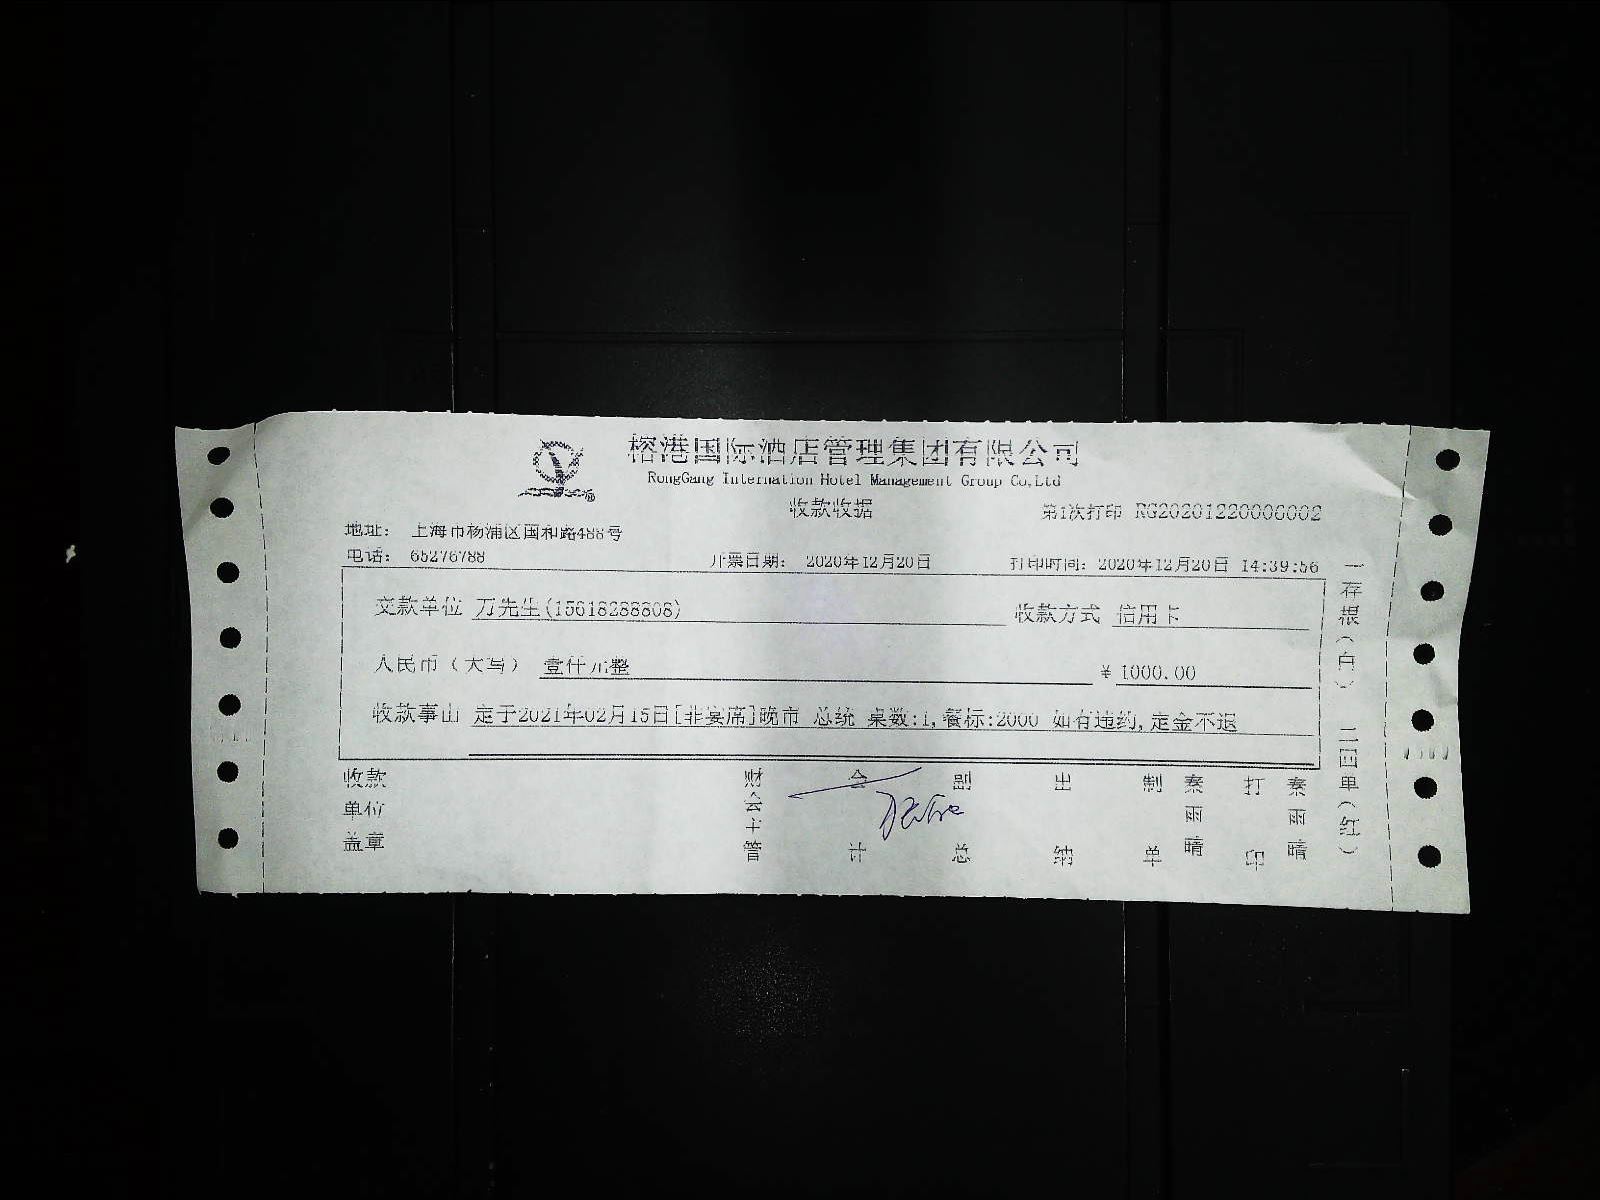 榕港国际酒店管理集团有限公司
RongGang Internation Hotel Management Group Co,Ltd
收款收据
第1次打印 RG20201220006002
地址： 上海市杨浦区国和路488号
电话： 65276788
开票日期： 2020年12月20日
打印时间：2020年12月20日 14:39:56
交款单位 万先生(15618288808)
收款方式 信用卡
人民币（大写） 壹仟元整
¥ 1000.00
收款事由 定于2021年02月15日[非宴席]晚市 总统 桌数:1,餐标:2000 如有违约,定金不退
收款单位盖章
财会主管
会计
副总
出纳
制单
秦雨晴
打印
秦雨晴
一存根（白） 二回单（红）